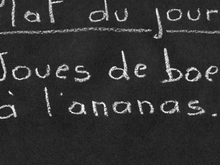 Plat du jour
Joues de boe
à l'ananas.